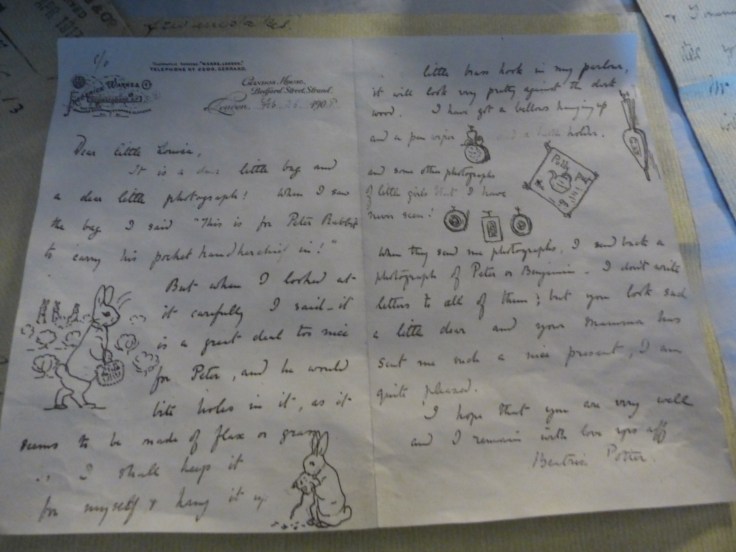 c/o
TELEPHONE Nº 2480, GERRARD.
Warne &
Chandos House,
Bedford Street, Strand,
London, Feb. 1905
Dear little Louisa,
It is a dear little bag and
a dear little photograph! When I saw
the bag I said "This is for Peter Rabbit
to carry his pocket handkerchief in!"
But when I looked at
it carefully I said - it
is a great deal too nice
for Peter, and he would
bite holes in it, as it
seems to be made of flax or grass
I shall keep it
for myself & hang it up
little brass hook in my parlour,
it will look very pretty against the dark
wood. I have got a bellows hanging up
and a pen wiper and a holder,
and some other photographs
of little girls that I have
never seen!
When they send me photographs, I send back a
photograph of Peter or Benjamin. I don't write
letters to all of them; but you look such
a little dear and your Mamma has
sent me such a nice present, I am
quite pleased.
I hope that you are very well
and I remain with love yrs aff
Beatrix Potter.